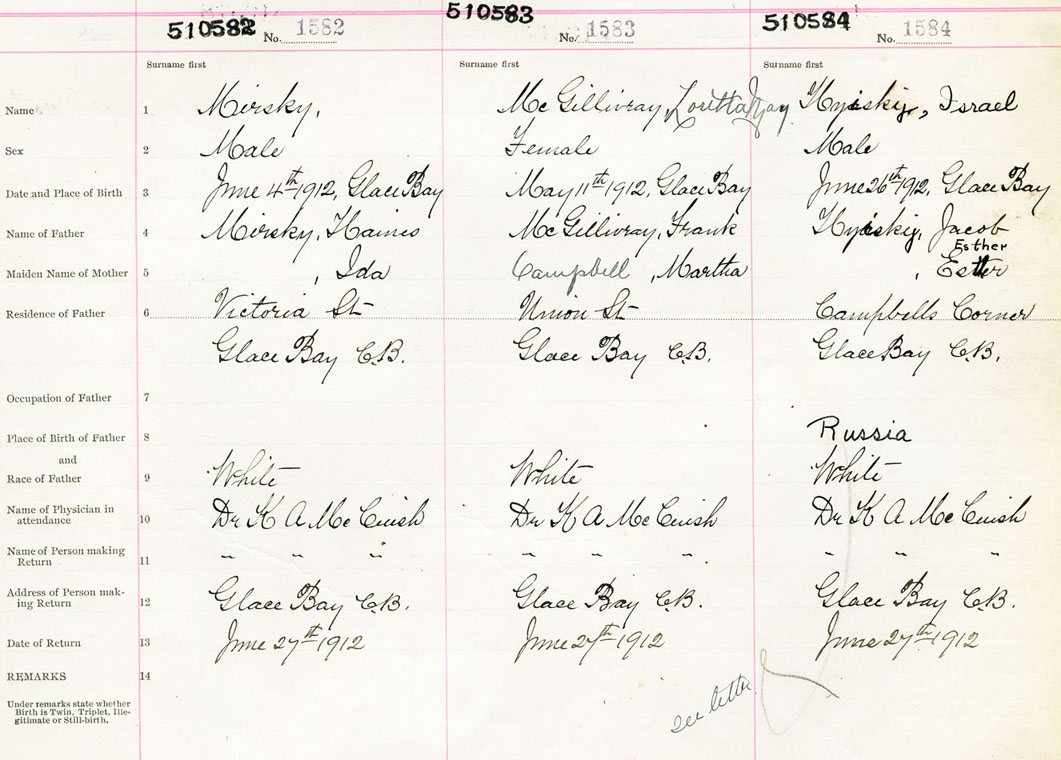 510582 510583 510584
No. 1582 No. 1583 No. 1584
Surname first Surname first Surname first
Name 1 Mirsky, McGillivray, Loretta May , Israel
Sex 2 Male Female Male
Date and Place of Birth 3 June 4th 1912, Glace Bay May 11th 1912, Glace Bay June 26th 1912, Glace Bay
Name of Father 4 Mirsky, Haines McGillivray, Frank , Jacob
Esther
Maiden Name of Mother 5 , Ida Campbell , Martha , Esther
Residence of Father 6 Victoria St Union St Campbells Corner
Glace Bay C.B. Glace Bay C.B. Glace Bay C.B.
Occupation of Father 7
Place of Birth of Father 8 Russia
and
Race of Father 9 White White White
Name of Physician in
attendance 10 Dr K A McCuish Dr K A McCuish Dr K A McCuish
Name of Person making
Return 11 " " " " " " " " "
Address of Person mak-
ing Return 12 Glace Bay C.B. Glace Bay C.B. Glace Bay C.B.
Date of Return 13 June 27th 1912 June 27th 1912 June 27th 1912
REMARKS 14
Under remarks state whether
Birth is Twin, Triplet, Ille-
gitimate or Still-birth.
see letter